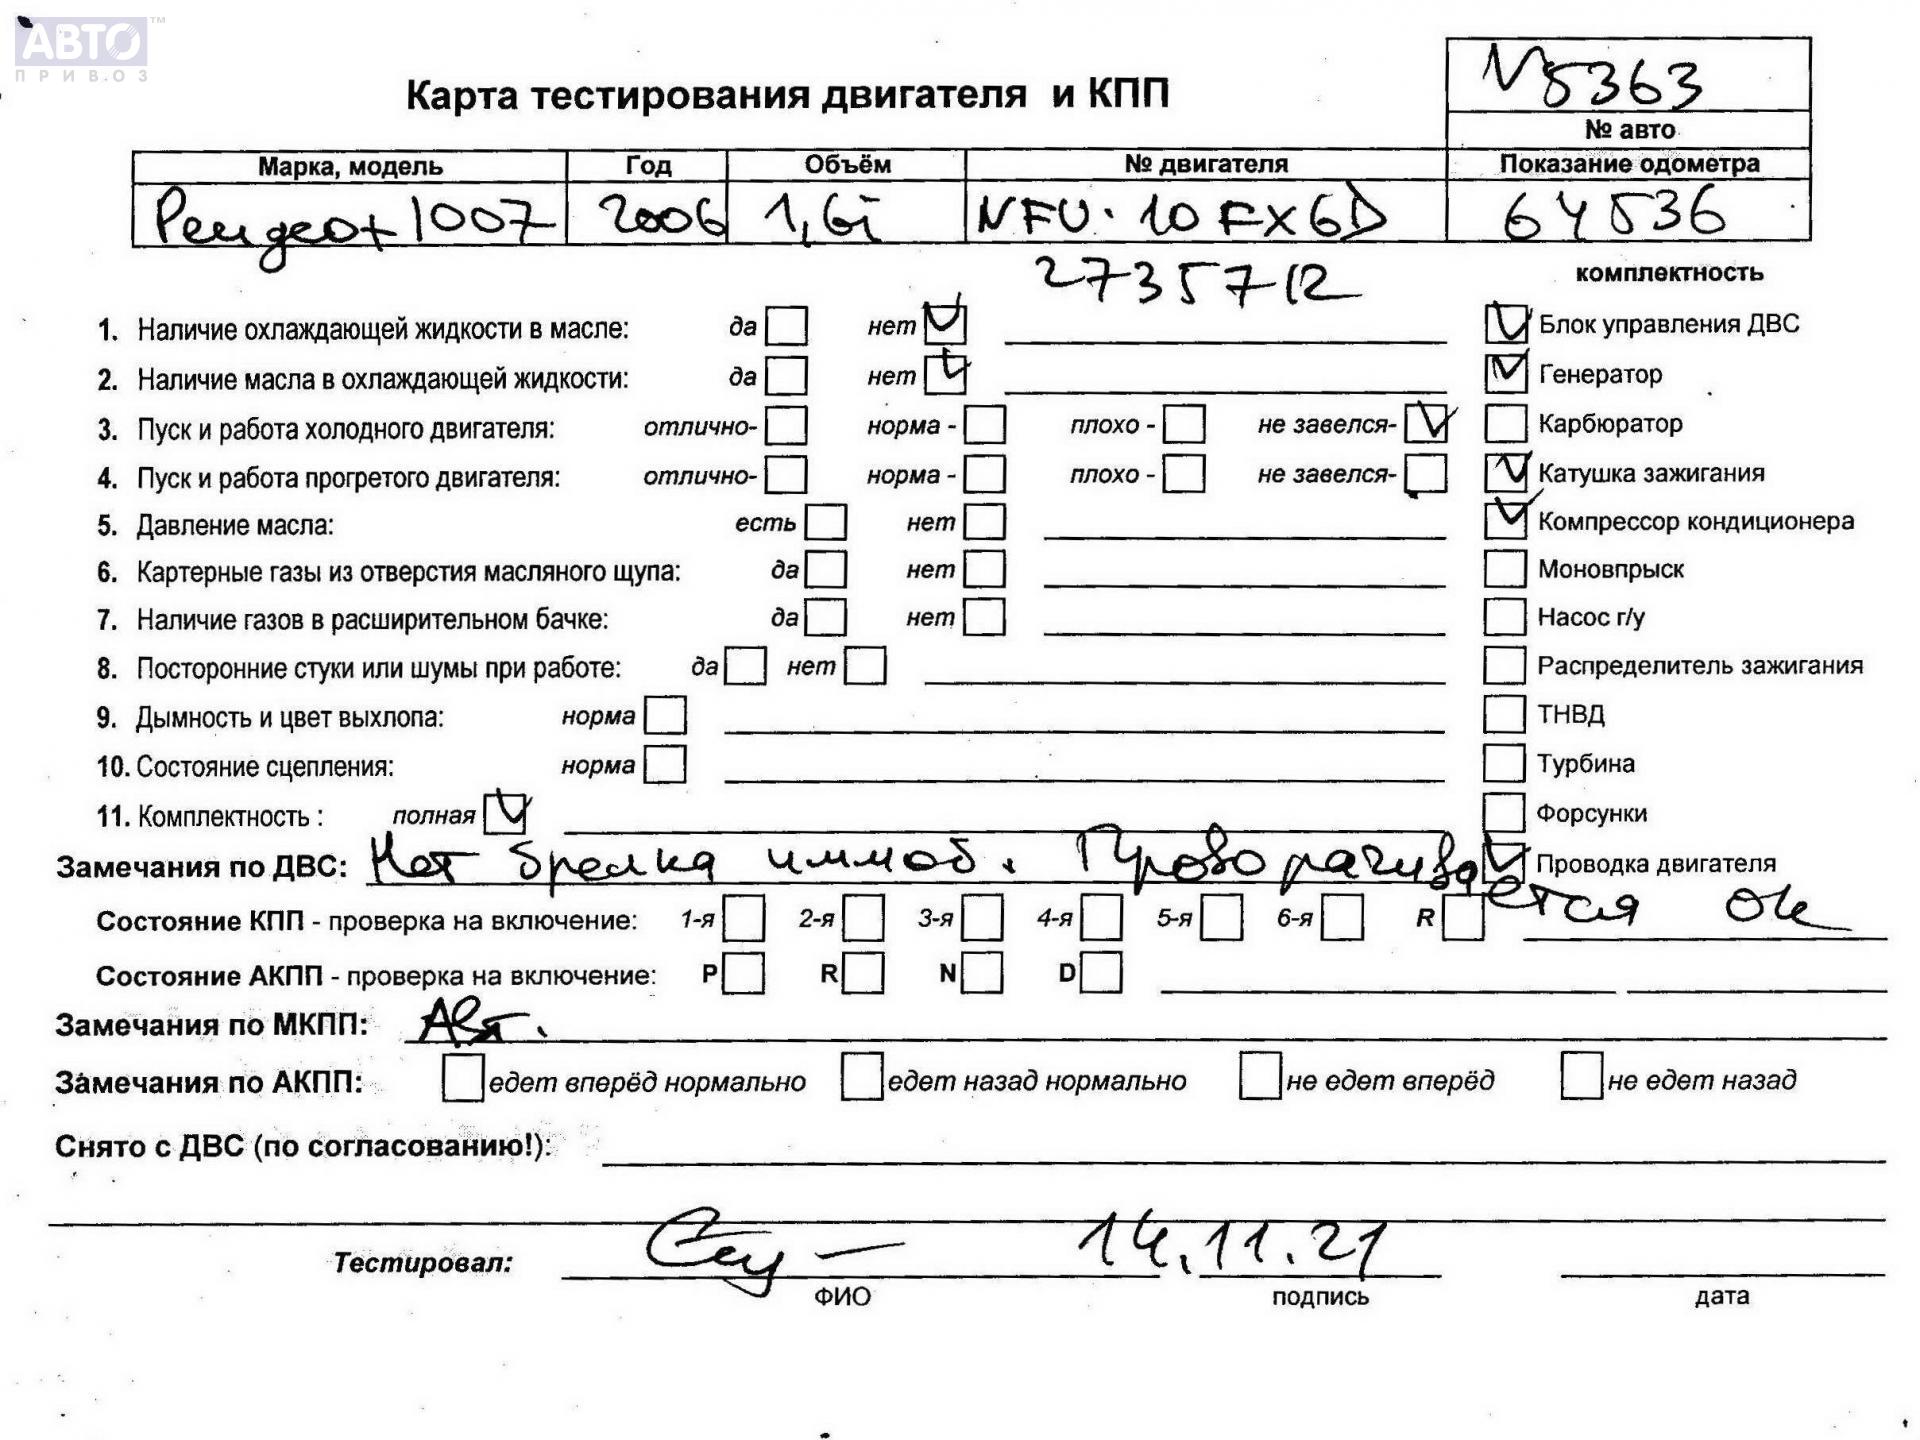 АВТО™
ПРИВОЗ
N5363
Карта тестирования двигателя и КПП
№ авто
Марка, модель Год Объём № двигателя Показание одометра
Peugeot 1007 2006 1,6i NFU·10FX6D 64536
2735712
комплектность
1. Наличие охлаждающей жидкости в масле: да нет Блок управления ДВС
2. Наличие масла в охлаждающей жидкости: да нет Генератор
3. Пуск и работа холодного двигателя: отлично- норма - плохо - не завелся- Карбюратор
4. Пуск и работа прогретого двигателя: отлично- норма - плохо - не завелся- Катушка зажигания
5. Давление масла: есть нет Компрессор кондиционера
6. Картерные газы из отверстия масляного щупа: да нет Моновпрыск
7. Наличие газов в расширительном бачке: да нет Насос г/у
8. Посторонние стуки или шумы при работе: да нет Распределитель зажигания
9. Дымность и цвет выхлопа: норма ТНВД
10. Состояние сцепления: норма Турбина
11. Комплектность : полная Форсунки
Замечания по ДВС: Нет брелка иммоб. Проворачивается ок Проводка двигателя
Состояние КПП - проверка на включение: 1-я 2-я 3-я 4-я 5-я 6-я R
Состояние АКПП - проверка на включение: P R N D
Замечания по МКПП: Авт.
Замечания по АКПП: едет вперёд нормально едет назад нормально не едет вперёд не едет назад
Снято с ДВС (по согласованию!):
Тестировал: 14.11.21
ФИО подпись дата